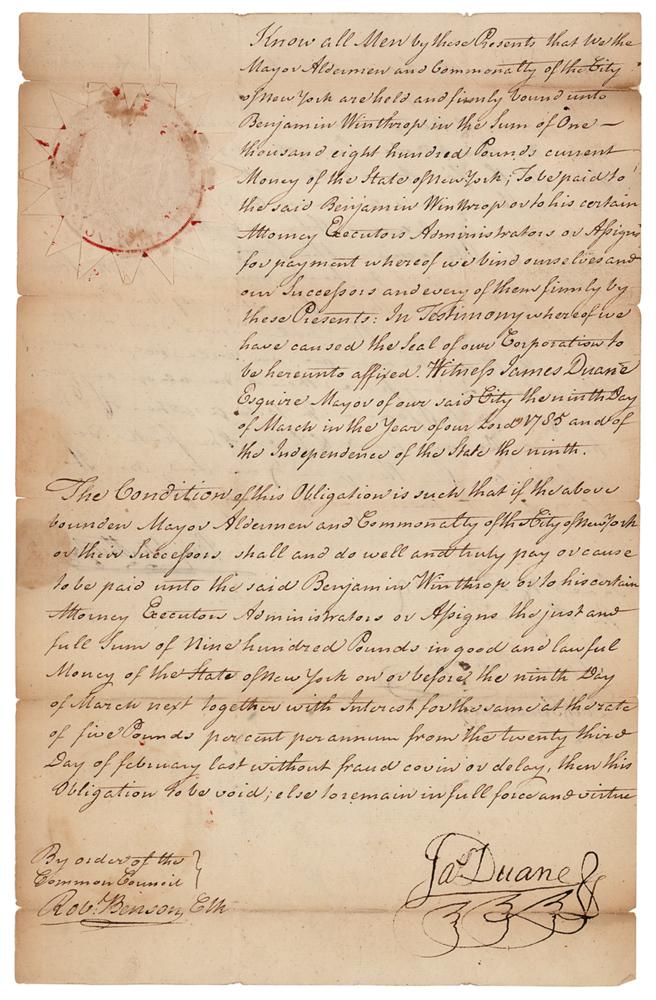 Know all Men by these Presents that We the
Mayor Aldermen and Commonalty of the City
of New York are held and firmly bound unto
Benjamin Winthrop in the Sum of One
thousand eight hundred Pounds current
Money of the State of New York; To be paid to
the said Benjamin Winthrop or to his certain
Attorney Executors Administrators or Assigns
for payment whereof we bind ourselves and
our Successors and every of them firmly by
these Presents: In Testimony whereof we
have caused the Seal of our Corporation to
be hereunto affixed. Witness James Duane
Esquire Mayor of our said City the ninth Day
of March in the Year of our Lord 1785 and of
the Independence of the State the ninth.
The Condition of this Obligation is such that if the above
bounden Mayor Aldermen and Commonalty of the City of New York
or their Successors shall and do well and truly pay or cause
to be paid unto the said Benjamin Winthrop or to his certain
Attorney Executors Administrators or Assigns the just and
full Sum of Nine hundred Pounds in good and lawful
Money of the State of New York on or before the ninth Day
of March next together with Interest for the same at the rate
of five Pounds per cent per annum from the twenty third
Day of february last without fraud covin or delay, then this
Obligation to be void; else to remain in full force and virtue
By order of the
Common Council
Robt. Benson Clk
Jas Duane